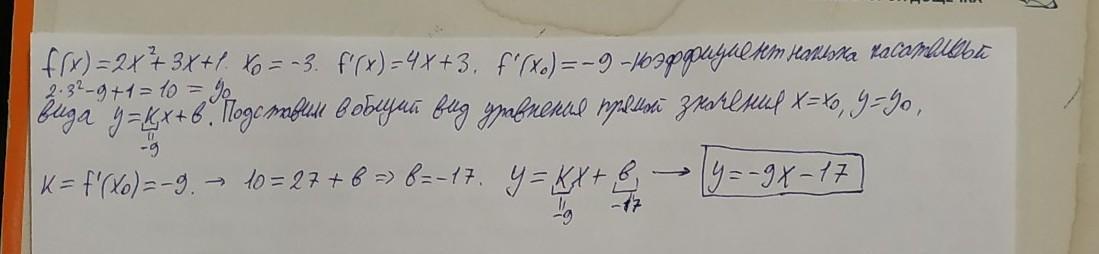 f(x)=2x²+3x+1. x₀=-3. f'(x)=4x+3. f'(x₀)=-9 - коэффициент наклона касательной
2·3²-9+1=10=y₀
вида y=kx+в. Подставим в общий вид уравнения прямой значения x=x₀, y=y₀,
-9
k=f'(x₀)=-9. → 10=27+в ⇒ в=-17. y=kx+в, → y=-9x-17
-9 -17